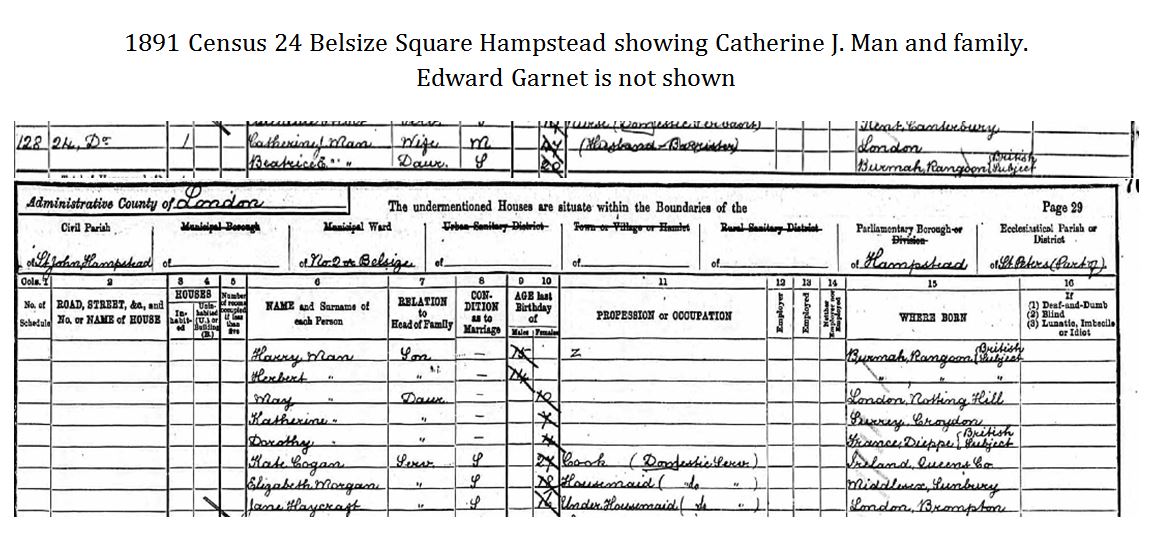 1891 Census 24 Belsize Square Hampstead showing Catherine J. Man and family.
Edward Garnet is not shown
Nurse (Domestic Servant) Kent, Canterbury
128 24, Do 1 Catherine J. Man Wife M (Husband - Barrister) London
Beatrice E. " " Daur. S 20 Burmah, Rangoon (British Subject
Administrative County of London The undermentioned Houses are situate within the Boundaries of the Page 29
Civil Parish Municipal Borough Municipal Ward Urban Sanitary District Town or Village or Hamlet Rural Sanitary District Parliamentary Borough or Division Ecclesiastical Parish or District
of St John, Hampstead of of No 2 or Belsize of of of of Hampstead of St Peters (Part of)
Cols. 1 2 3 4 5 6 7 8 9 10 11 12 13 14 15 16
No. of Schedule ROAD, STREET, &c., and No. or NAME of HOUSE HOUSES Inhabited Uninhabited (U.) or Building (B.) Number of rooms occupied if less than five NAME and Surname of each Person RELATION to Head of Family CONDITION as to Marriage AGE last Birthday of Males Females PROFESSION or OCCUPATION Employer Employed Neither Employer nor Employed WHERE BORN If (1) Deaf-and-Dumb (2) Blind (3) Lunatic, Imbecile or Idiot
Harry Man Son – 15 Z Burmah, Rangoon (British Subject
Herbert " " – 14 " " "
May " Daur. – 10 London, Notting Hill
Katherine " " – Surrey, Croydon
Dorothy " " – France, Dieppe (British Subject
Kate Cogan Serv. S 24 Cook (Domestic Serv.) Ireland, Queens Co
Elizabeth Morgan " S 18 Housemaid ( do " ) Middlesex, Sunbury
Jane Haycraft " S 16 Under Housemaid ( do " ) London, Brompton